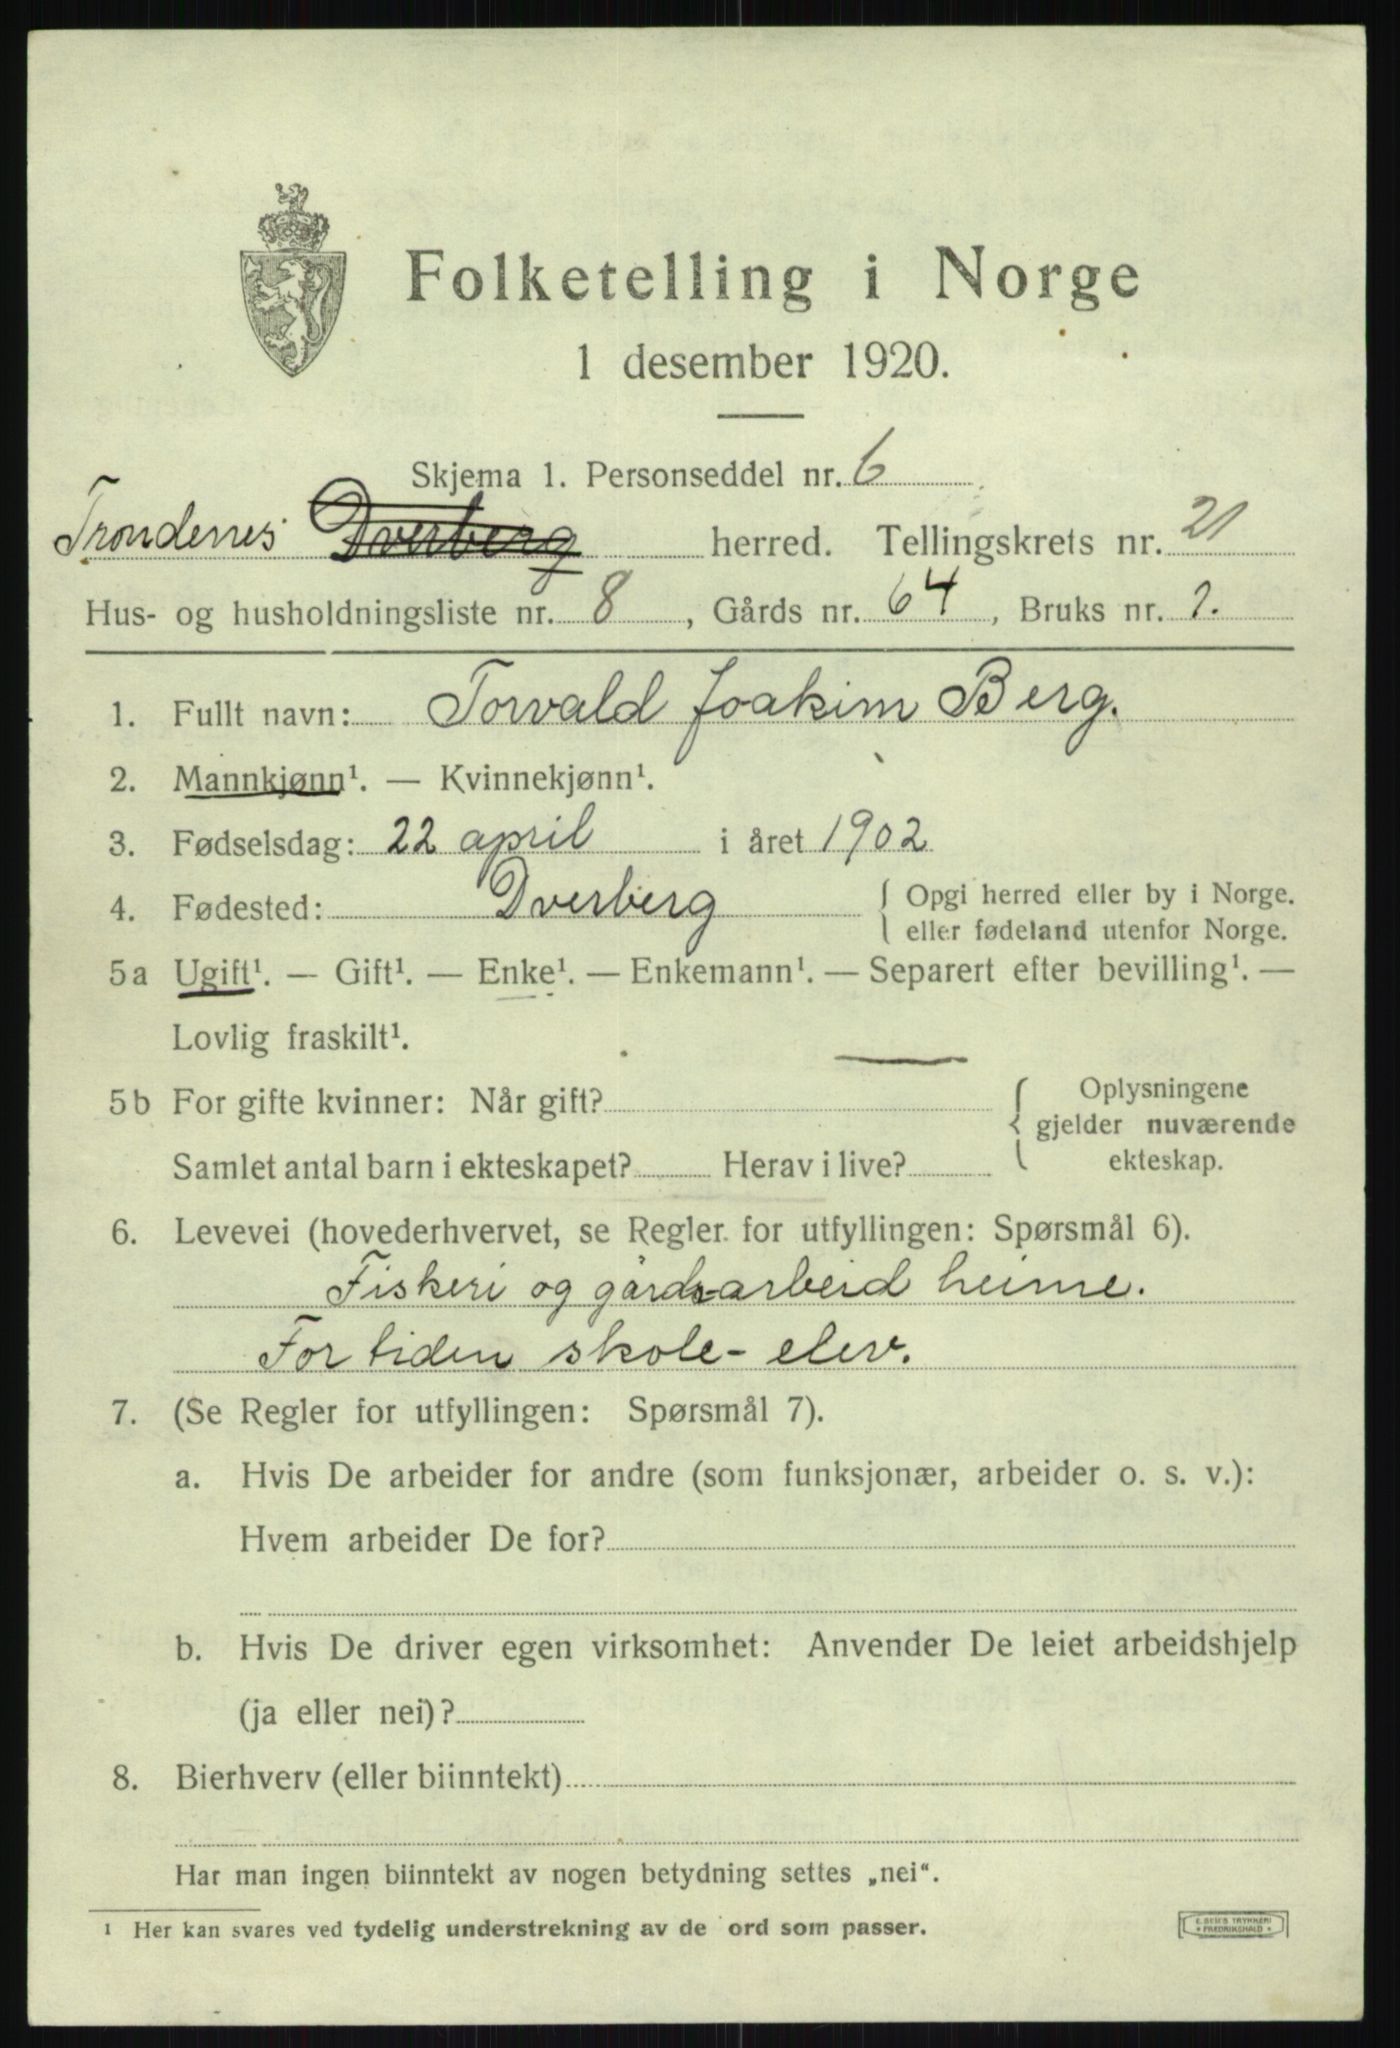 Folketelling i Norge
1 desember 1920.
Skjema 1. Personseddel nr. 6
Trondenes Dverberg herred. Tellingskrets nr. 21
Hus- og husholdningsliste nr. 8, Gårds nr. 64, Bruks nr. 1.
1. Fullt navn: Torvald Joakim Berg.
2. Mannkjønn¹. — Kvinnekjønn¹.
3. Fødselsdag: 22 april i året 1902
4. Fødested: Dverberg { Opgi herred eller by i Norge.
eller fødeland utenfor Norge.
5a Ugift¹. — Gift¹. — Enke¹. — Enkemann¹. — Separert efter bevilling¹. —
Lovlig fraskilt¹.
5b For gifte kvinner: Når gift? { Oplysningene
gjelder nuværende
Samlet antal barn i ekteskapet? Herav i live? ekteskap.
6. Levevei (hovederhvervet, se Regler for utfyllingen: Spørsmål 6).
Fiskeri og gårdsarbeid heime.
For tiden skole-elev.
7. (Se Regler for utfyllingen: Spørsmål 7).
a. Hvis De arbeider for andre (som funksjonær, arbeider o. s. v.):
Hvem arbeider De for?
b. Hvis De driver egen virksomhet: Anvender De leiet arbeidshjelp
(ja eller nei)?
8. Bierhverv (eller biinntekt)
Har man ingen biinntekt av nogen betydning settes „nei“.
¹ Her kan svares ved tydelig understrekning av de ord som passer.
E. SEM'S TRYKKERI
FREDRIKSHALD